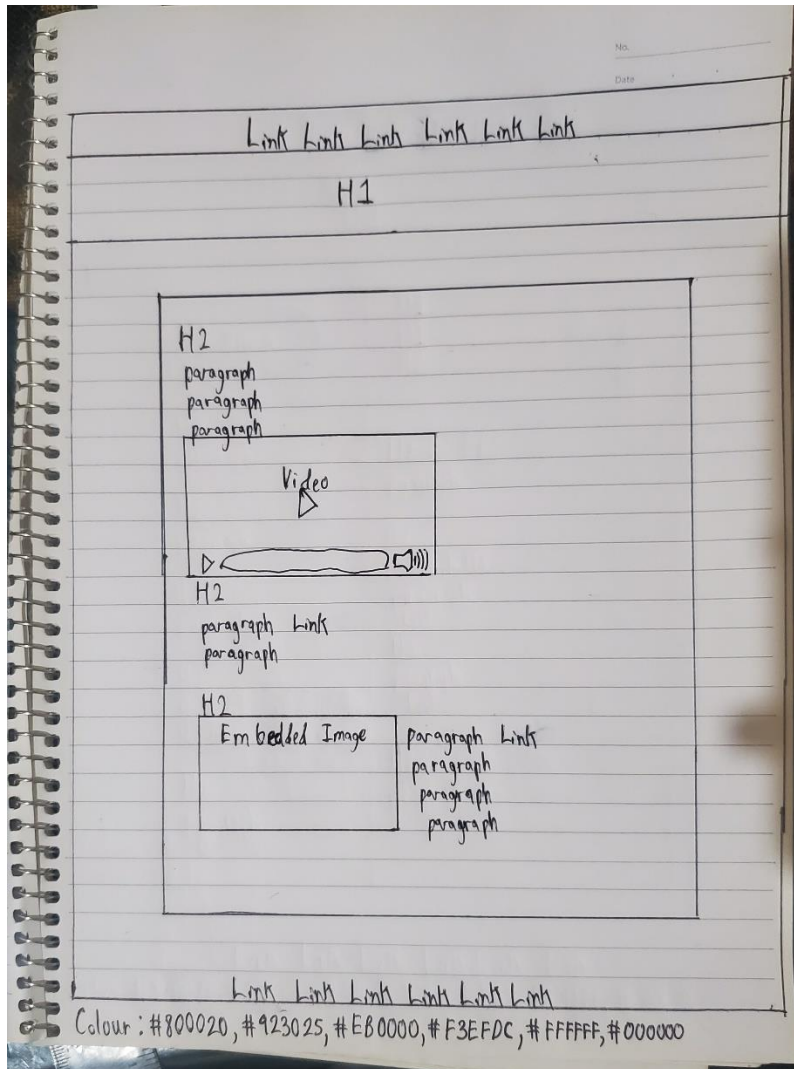 No.
Date
Link Link Link Link Link Link
H1
H2
paragraph
paragraph
paragraph
Video
H2
paragraph Link
paragraph
H2
Embedded Image
paragraph Link
paragraph
paragraph
paragraph
Link Link Link Link Link Link
Colour : #800020, #923025, #EB0000, #F3EFDC, #FFFFFF, #000000